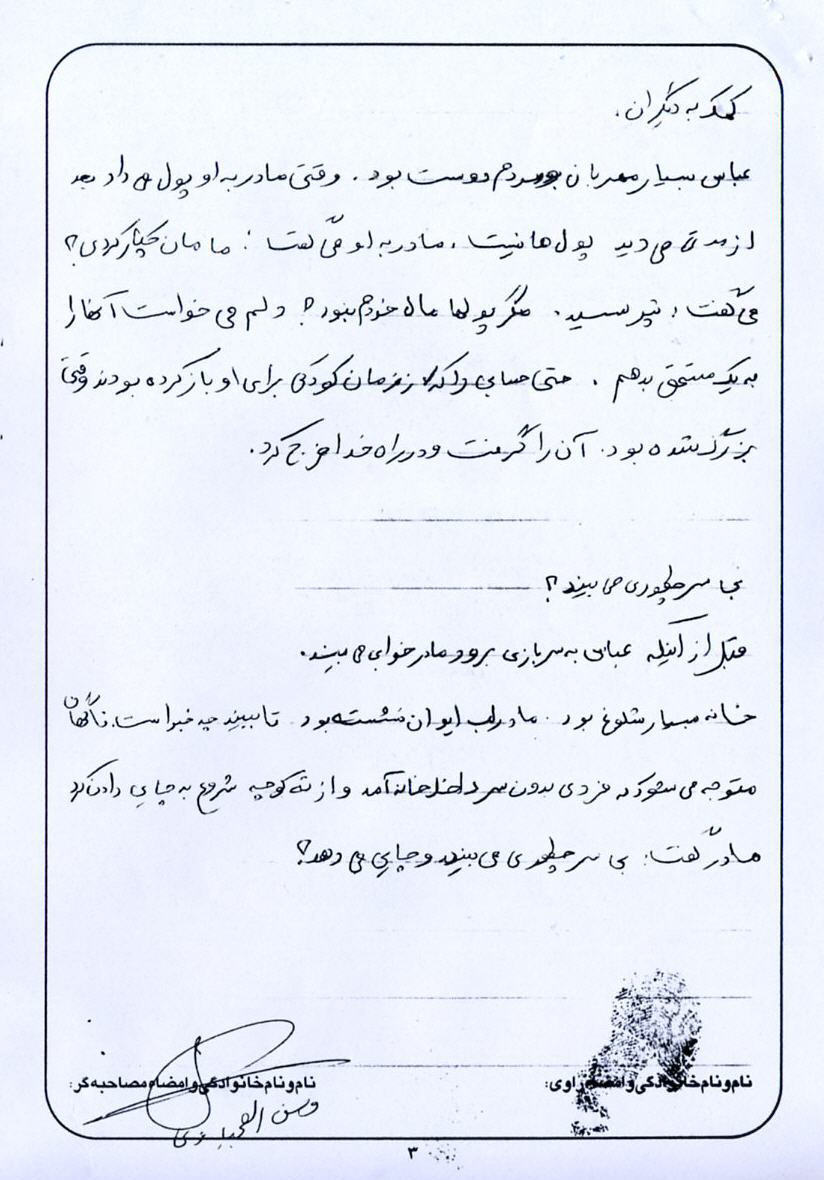 کمک به دیگران.
عباس بسیار مهربان و مردم دوست بود. وقتی مادر به او پول می داد بعد
از مدتی می دید پول ها نیست، مادر به او می گفت: مامان چیکار کردی؟
می گفت: نپرسید. مگر پولها مال خودم نبود؟ دلم می خواست آنها را
به یک مستحق بدهم. حتی حسابی را که از زمان کودکی برای او باز کرده بودند وقتی
بزرگ شده بود. آن را گرفت و در راه خدا خرج کرد.
بی سر چطوری می بیند؟
قبل از اینکه عباس به سربازی برود مادر خوابی می بیند.
خانه بسیار شلوغ بود. مادر لب ایوان نشسته بود تا ببیند چه خبر است. ناگهان
متوجه می شود که فردی بدون سر داخل خانه آمد و از ته کوچه شروع به چایی دادن کرد
مادر گفت: بی سر چطوری می بیند و چایی می دهد؟
نام و نام خانوادگی و امضاء راوی:
نام و نام خانوادگی و امضاء مصاحبه گر:
۳